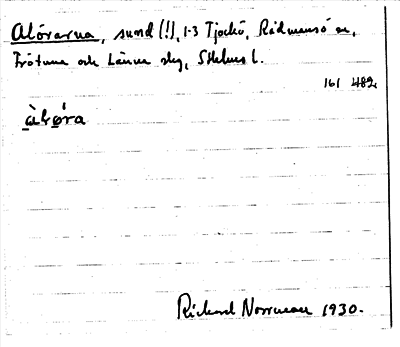 Alörarna, sund (!), 1-3 Tjockö, Rådmansö sn,
Frötuna och Länna skg, Sthlms l.
161 482
àl-ö́ra
Rickard Norrman 1930.